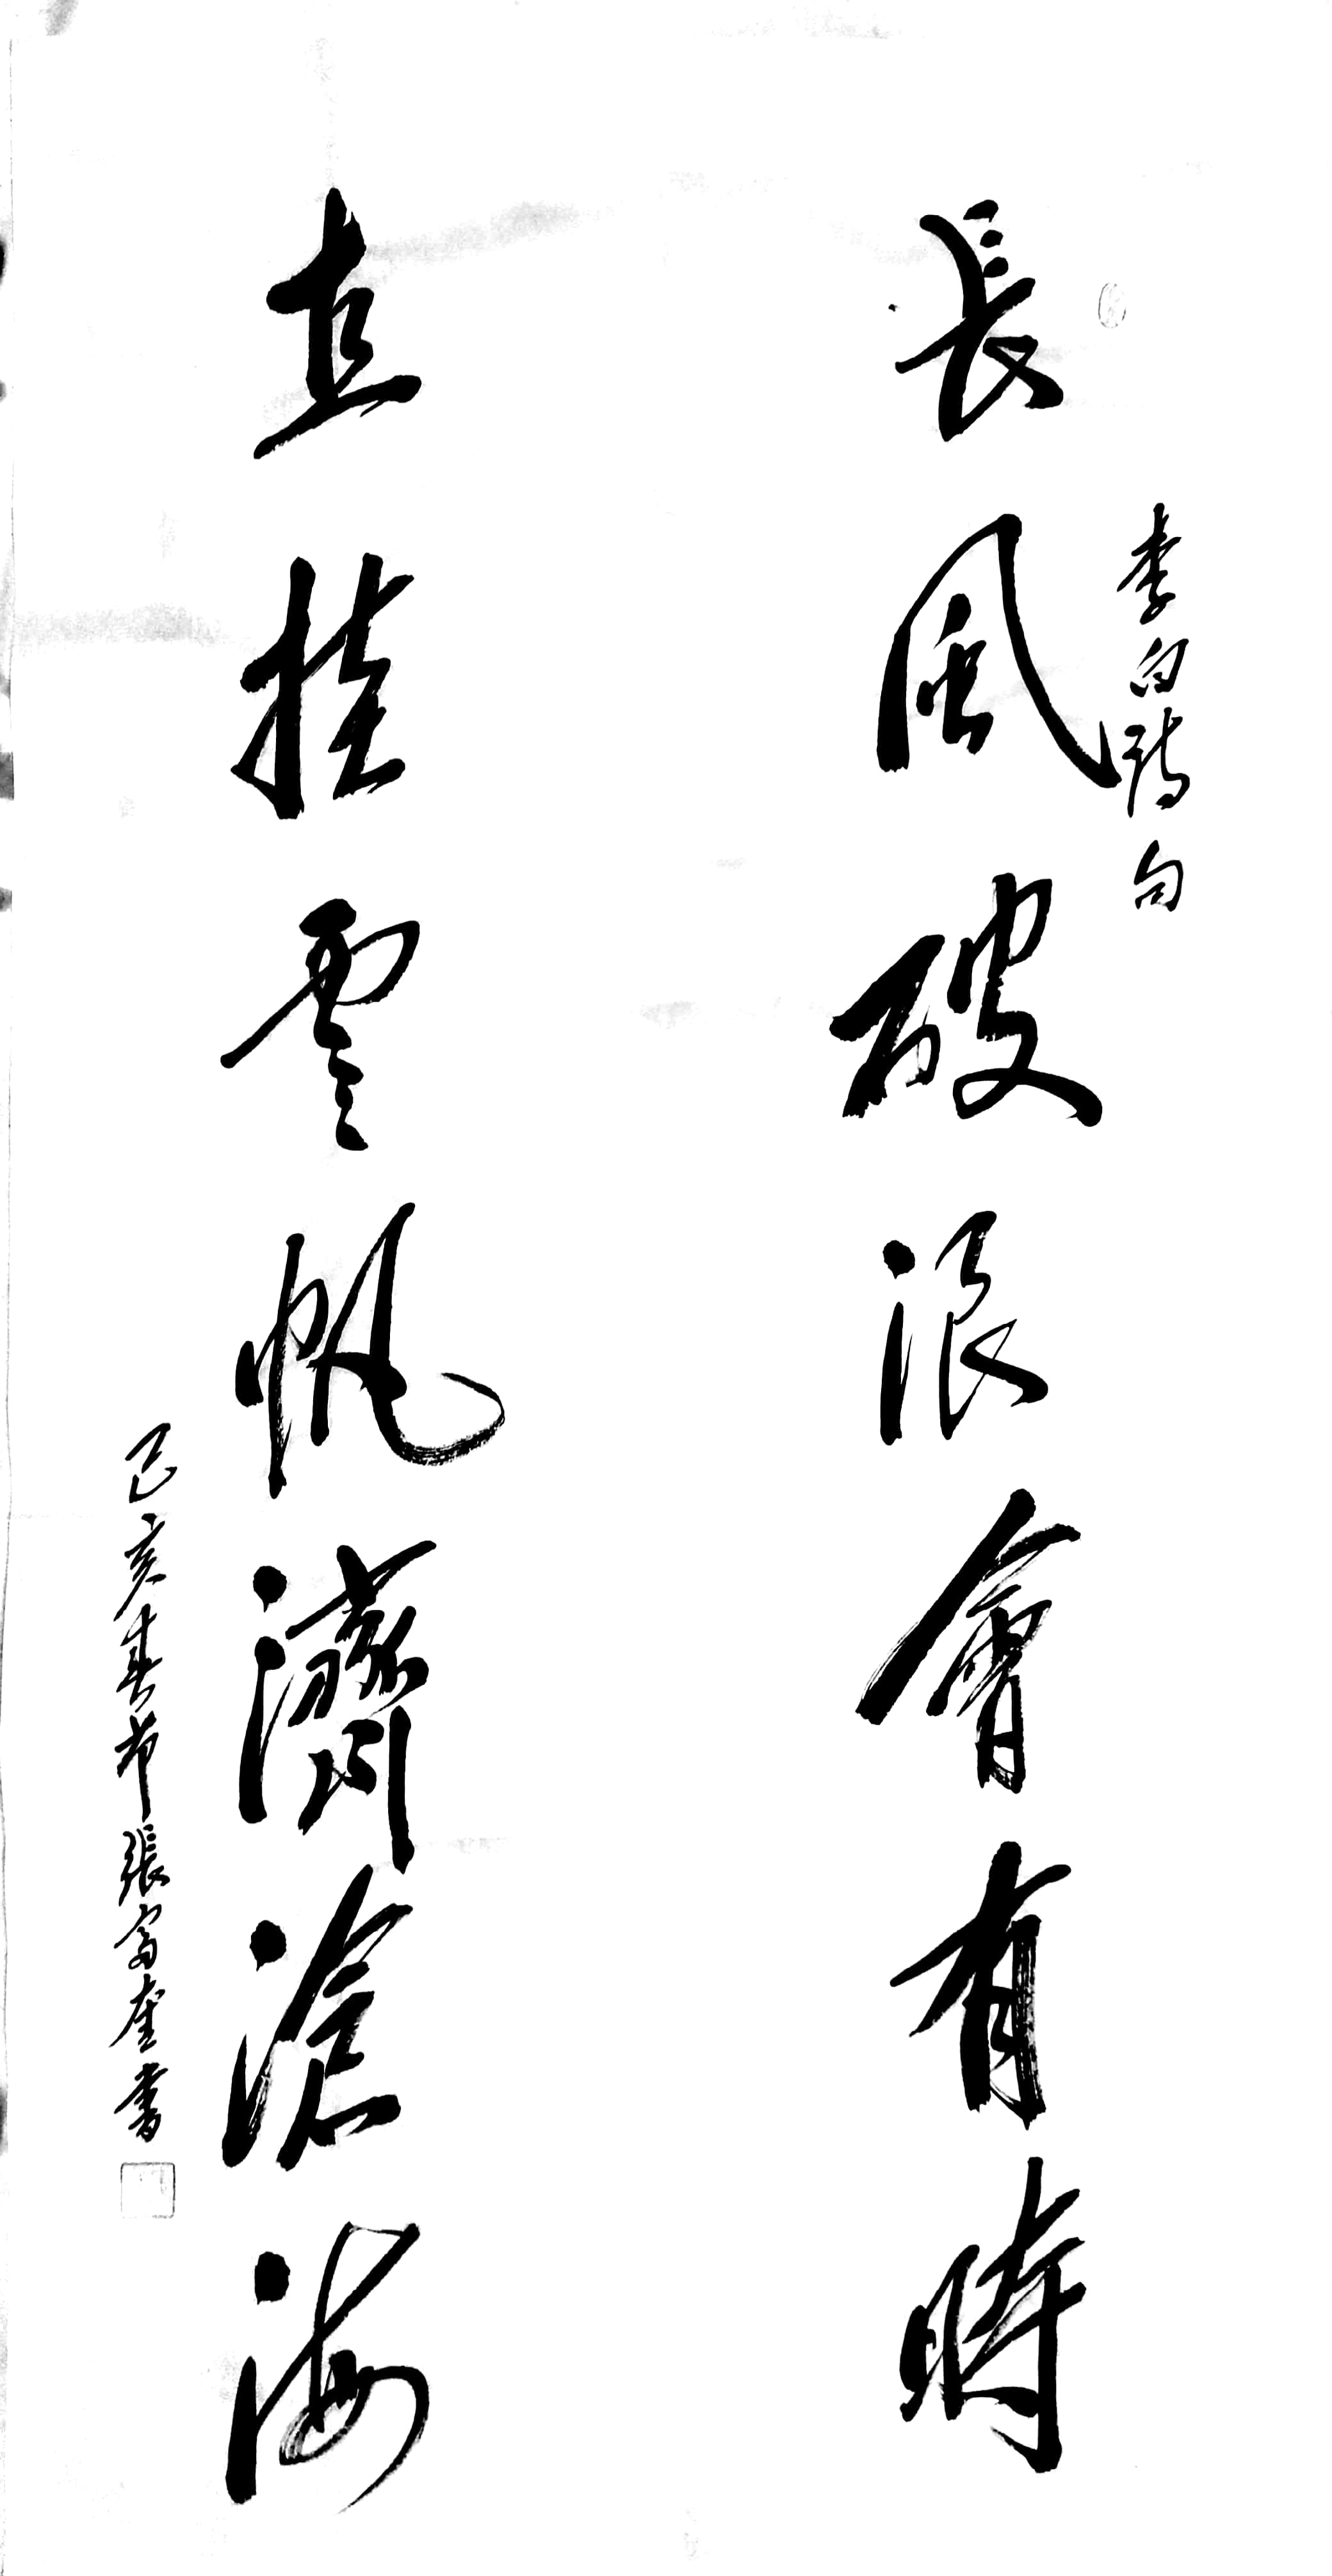 李白詩句
長風破浪會有時
直挂雲帆濟滄海
己亥春節張富奎書